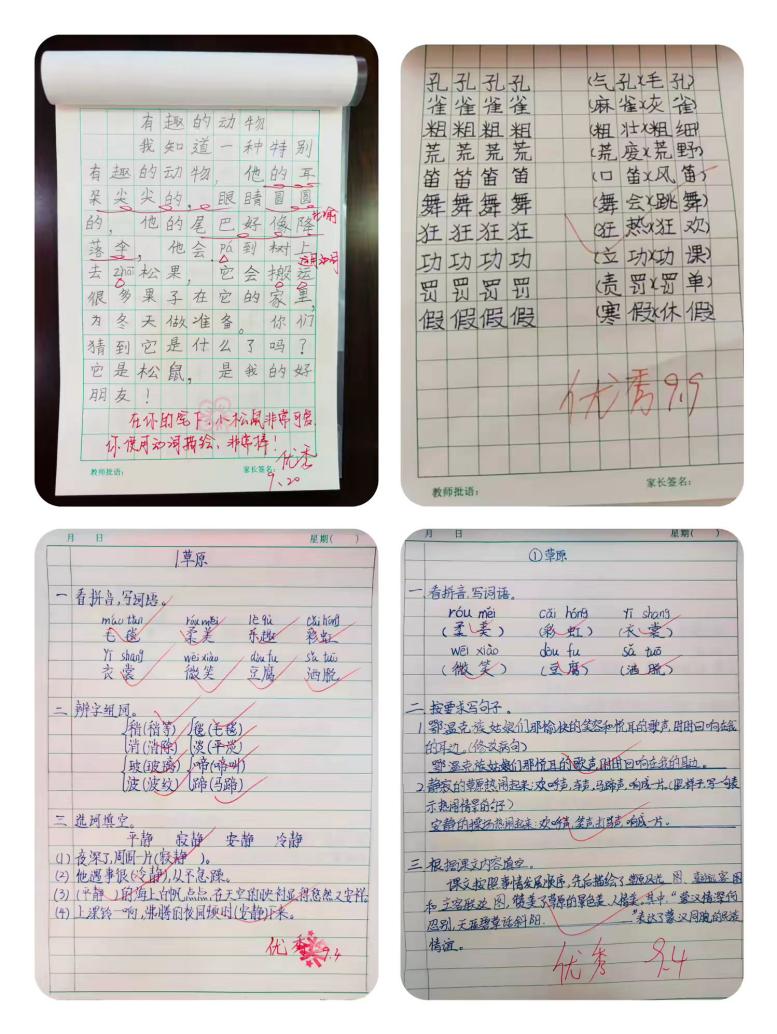 有趣的动物
我知道一种特别
有趣的动物,他的耳
朵尖尖的,眼睛圆圆
的,他的尾巴好像降
比喻
落伞,他会pá到树上
运用动词
去zhāi松果,它会搬运
很多果子在它的家里,
为冬天做准备。你们
猜到它是什么了吗?
它是松鼠,是我的好
朋友!
在你的笔下,小松鼠非常可爱,
你使用动词描绘,非常棒!
优秀
9、20
教师批语: 家长签名:
孔孔孔孔 (气孔)(毛孔)
雀雀雀雀 (麻雀)(灰雀)
粗粗粗粗 (粗壮)(粗细)
荒荒荒荒 (荒废)(荒野)
笛笛笛笛 (口笛)(风笛)
舞舞舞舞 (舞会)(跳舞)
狂狂狂狂 (狂热)(狂欢)
功功功功 (立功)(功课)
罚罚罚罚 (责罚)(罚单)
假假假假 (寒假)(休假)
优秀 9.9
教师批语: 家长签名:
月 日 星期( )
1.草原
一.看拼音,写词语。
máo tǎn róu měi lè qù cǎi hóng
毛毯 柔美 乐趣 彩虹
yī shang wēi xiào dòu fu sǎ tuō
衣裳 微笑 豆腐 洒脱
二.辨字组词。
稍(稍等) 毯(毛毯)
消(消除) 淡(平淡)
玻(玻璃) 啼(啼叫)
波(波纹) 蹄(马蹄)
三.选词填空。
平静 寂静 安静 冷静
(1)夜深了,周围一片(寂静)。
(2)他遇事很(冷静),从不急躁。
(3)(平静)的海上白帆点点,在天空的映衬显得悠然又安祥。
(4)上课铃一响,沸腾的校园顿时(安静)下来。
优秀 9.4
月 日 星期( )
①草原
一.看拼音,写词语。
róu měi cǎi hóng yī shang
(柔美) (彩虹) (衣裳)
wēi xiào dòu fu sǎ tuō
(微笑) (豆腐) (洒脱)
二.按要求写句子。
1.鄂温克族姑娘们那愉快的笑容和悦耳的歌声,时时回响在我
的耳边。(修改病句)
鄂温克族姑娘们那悦耳的歌声,时时回响在我的耳边。
2.静寂的草原热闹起来:欢呼声,车声,马蹄声,响成一片。(照样子,写一句表
示热闹情景的句子)
安静的操场热闹起来:欢呼声,笑声,打骂声,响成一片。
三.根据课文内容填空。
课文按照事情发展顺序,先后描绘了草原风光图、喜迎远客图
和主客联欢图,赞美了草原的景色美、人情美,其中,“蒙汉情深何
忍别,天涯碧草话斜阳”表达了蒙汉同胞的民族
情谊。
优秀 9.4